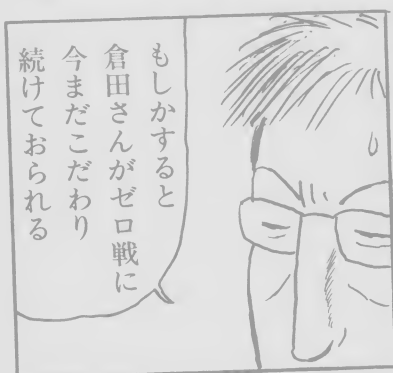 もしかすると
倉田さんがゼロ戦に
今まだこだわり
続けておられる